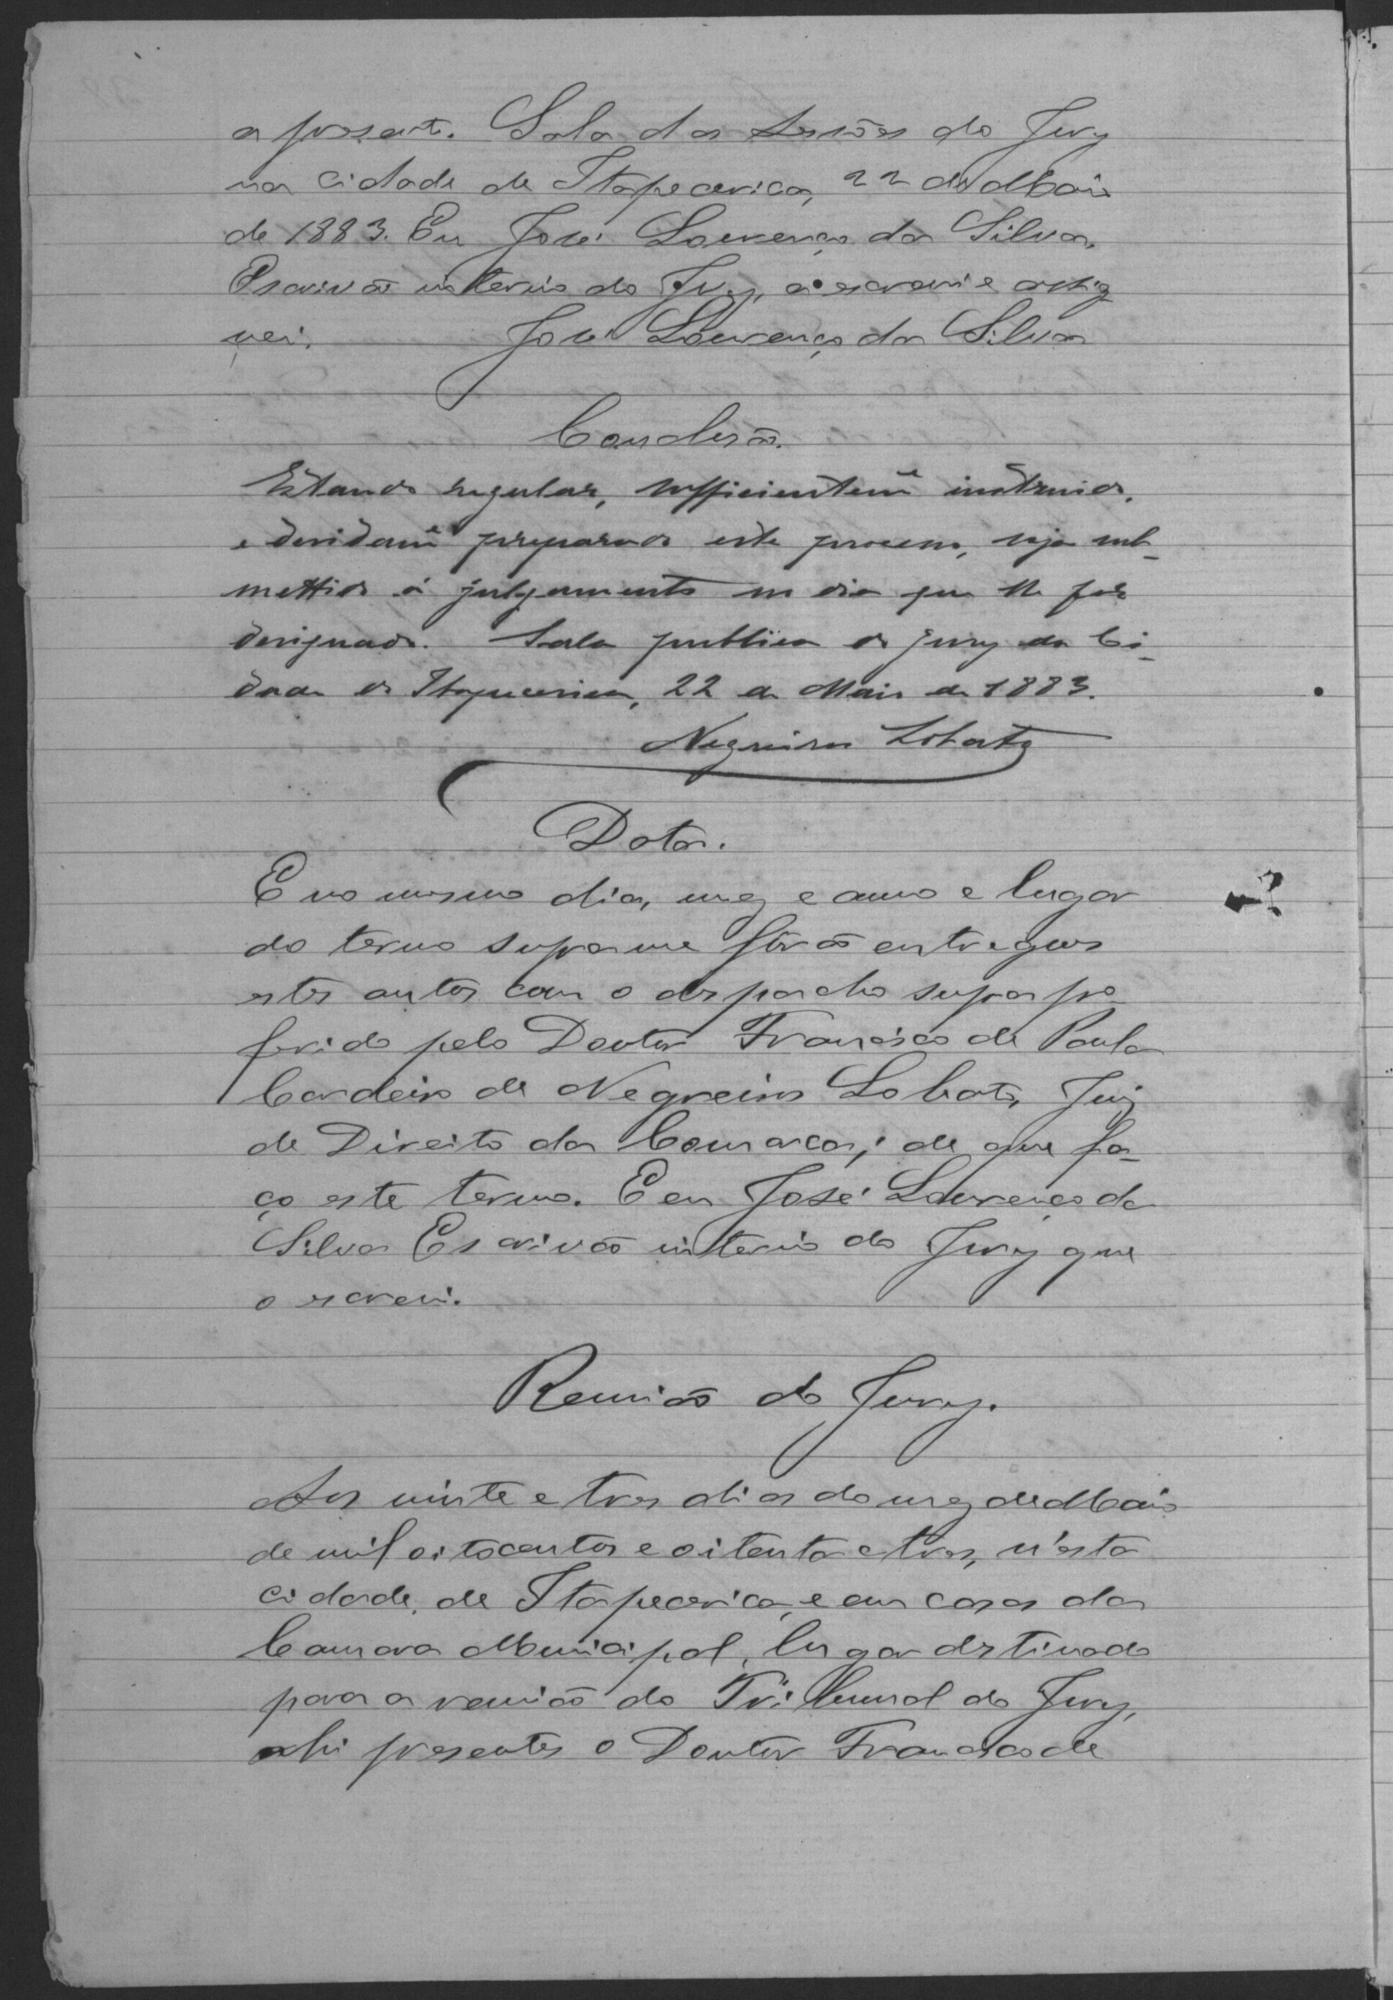 a presente. Sala das Sessões do Jury
na cidade de Itapecerica, 22 de Maio
de 1883. Eu José Lourenço da Silva,
Escrivão interino do Jury, o escrevi e assig
nei. José Lourenço da Silva
Conclusão.
Estando regular, sufficientemᵉ instruido,
e devidamᵉ preparado este processo, seja sub-
mettido á julgamento no dia que lhe for
designado. Sala publica do jury da Ci-
dade de Itapecerica, 22 de Maio de 1883.
Negreiros Lobato
Data.
E no mesmo dia, mez e anno e lugar
do termo supra me fôrão entregues
estes autos com o despacho supra pro
ferido pelo Doutor Francisco de Paula
Cordeiro de Negreiros Lobato, Juiz
de Direito da Comarca; de que fa-
ço este termo. E eu José Lourenço da
Silva Escrivão interino do Jury que
o escrevi.
Reunião do Jury.
Aos vinte e tres dias do mez de Maio
de mil oitocentos e oitenta e tres, n'esta
cidade de Itapecerica, e em casas da
Camara Municipal, lugar destinado
para a reunião do Tribunal do Jury,
ahi presentes o Doutor Francisco de